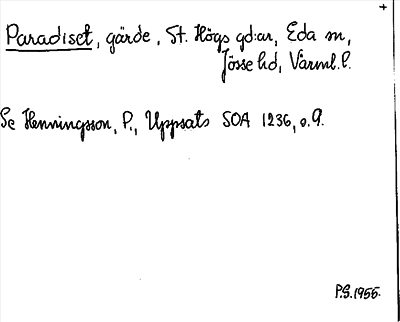 +
Paradiset, gärde, St. Högs gd:ar, Eda sn,
Jösse hd, Värml. l.
Se Henningsson, P., Uppsats SOA 1236, s. 9.
P.S. 1956.